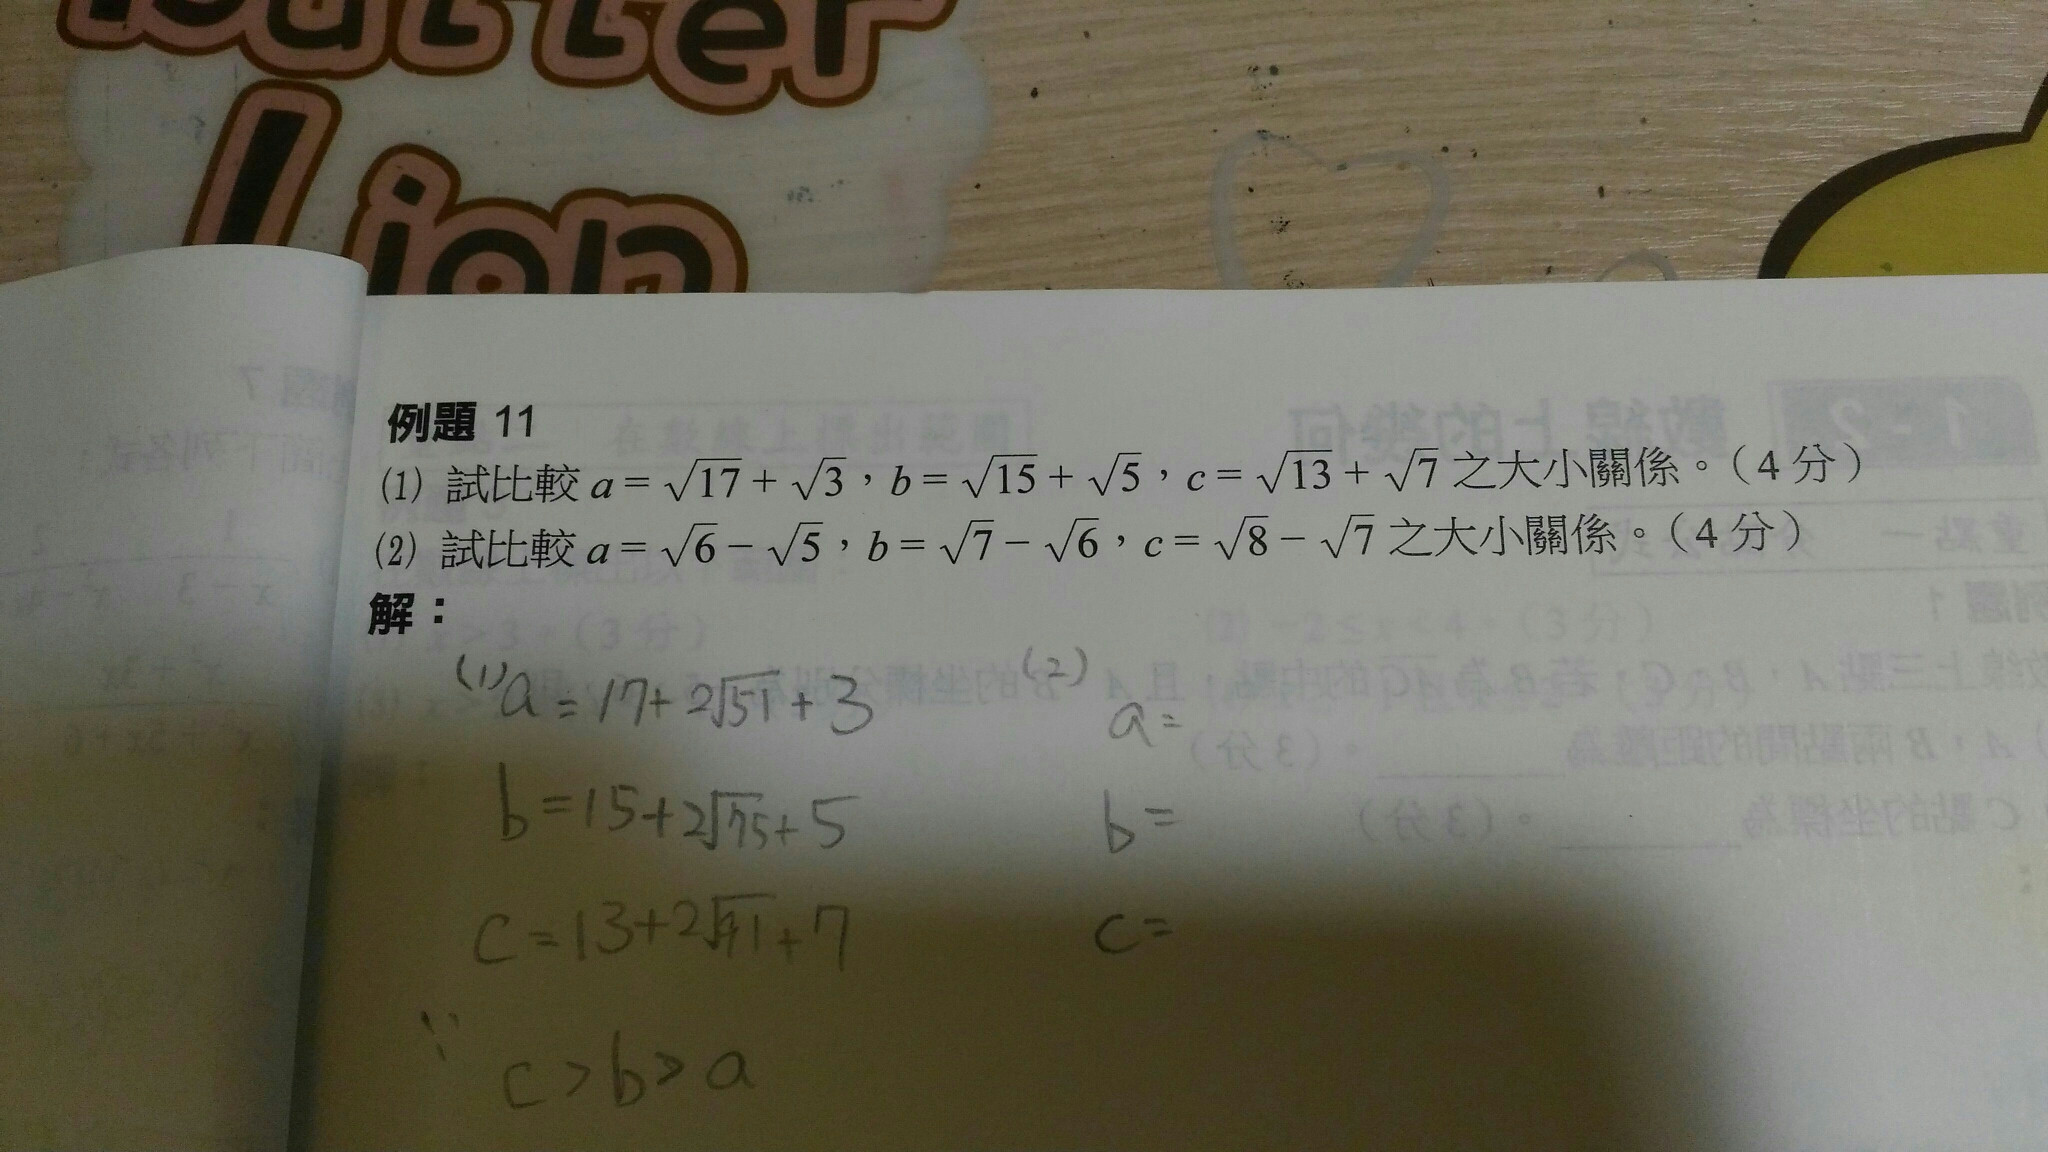 Butter
Lion
例題 11
(1) 試比較 a = √17 + √3，b = √15 + √5，c = √13 + √7 之大小關係。（4 分）
(2) 試比較 a = √6 − √5，b = √7 − √6，c = √8 − √7 之大小關係。（4 分）
解：
(1) a = 17 + 2√51 + 3
b = 15 + 2√75 + 5
c = 13 + 2√91 + 7
c > b > a
(2)
a =
b =
c =